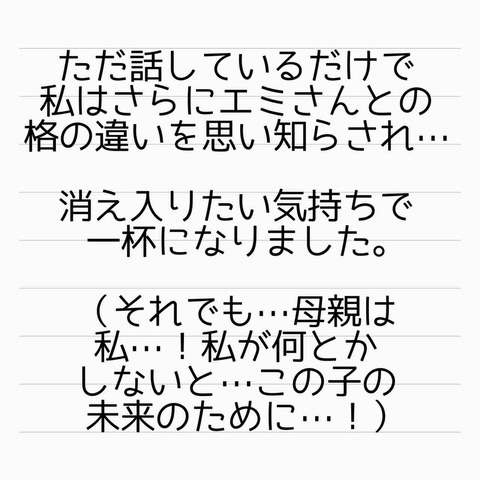 ただ話しているだけで
私はさらにエミさんとの
格の違いを思い知らされ…
消え入りたい気持ちで
一杯になりました。
（それでも…母親は
私…！私が何とか
しないと…この子の
未来のために…！）